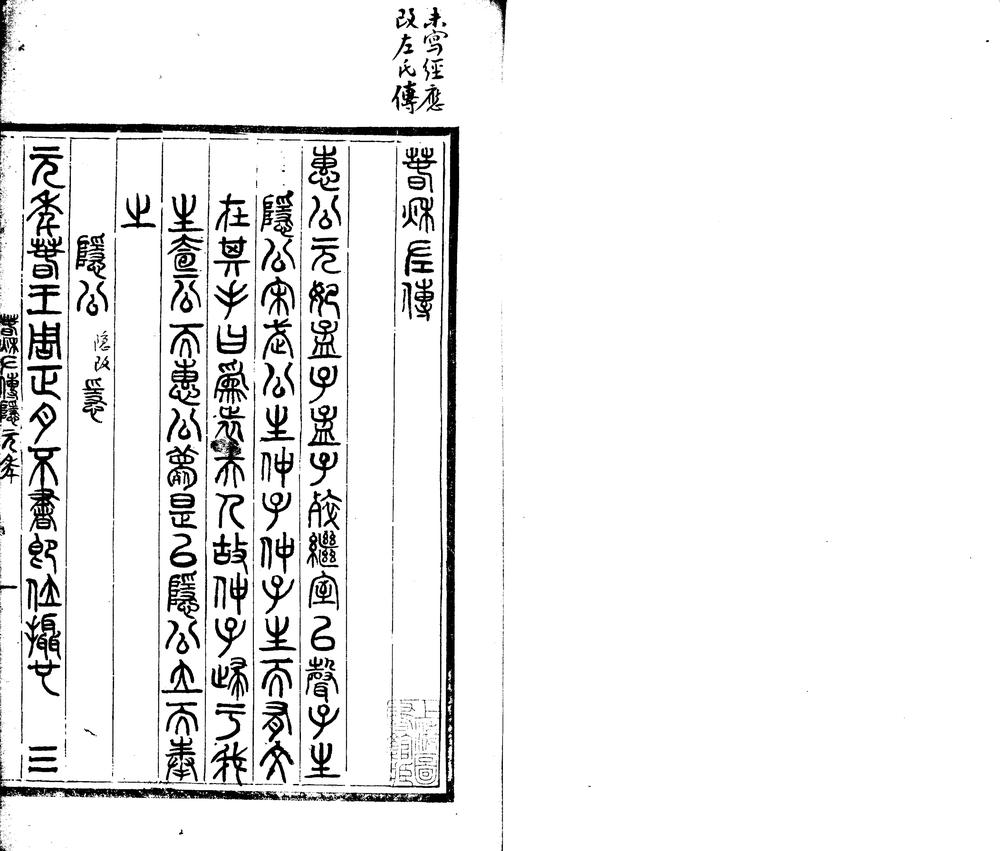 未寫經應
改左氏傳
春秋左傳
惠公元妃孟子孟子卒繼室以聲子生
隱公宋武公生仲子仲子生而有文
在其手曰為魯夫人故仲子歸于我
生桓公而惠公薨是以隱公立而奉
之
隱公 隐改㥯
元年春王周正月不書即位攝也 三
春秋左傳隱元年 一
上海圖書館藏